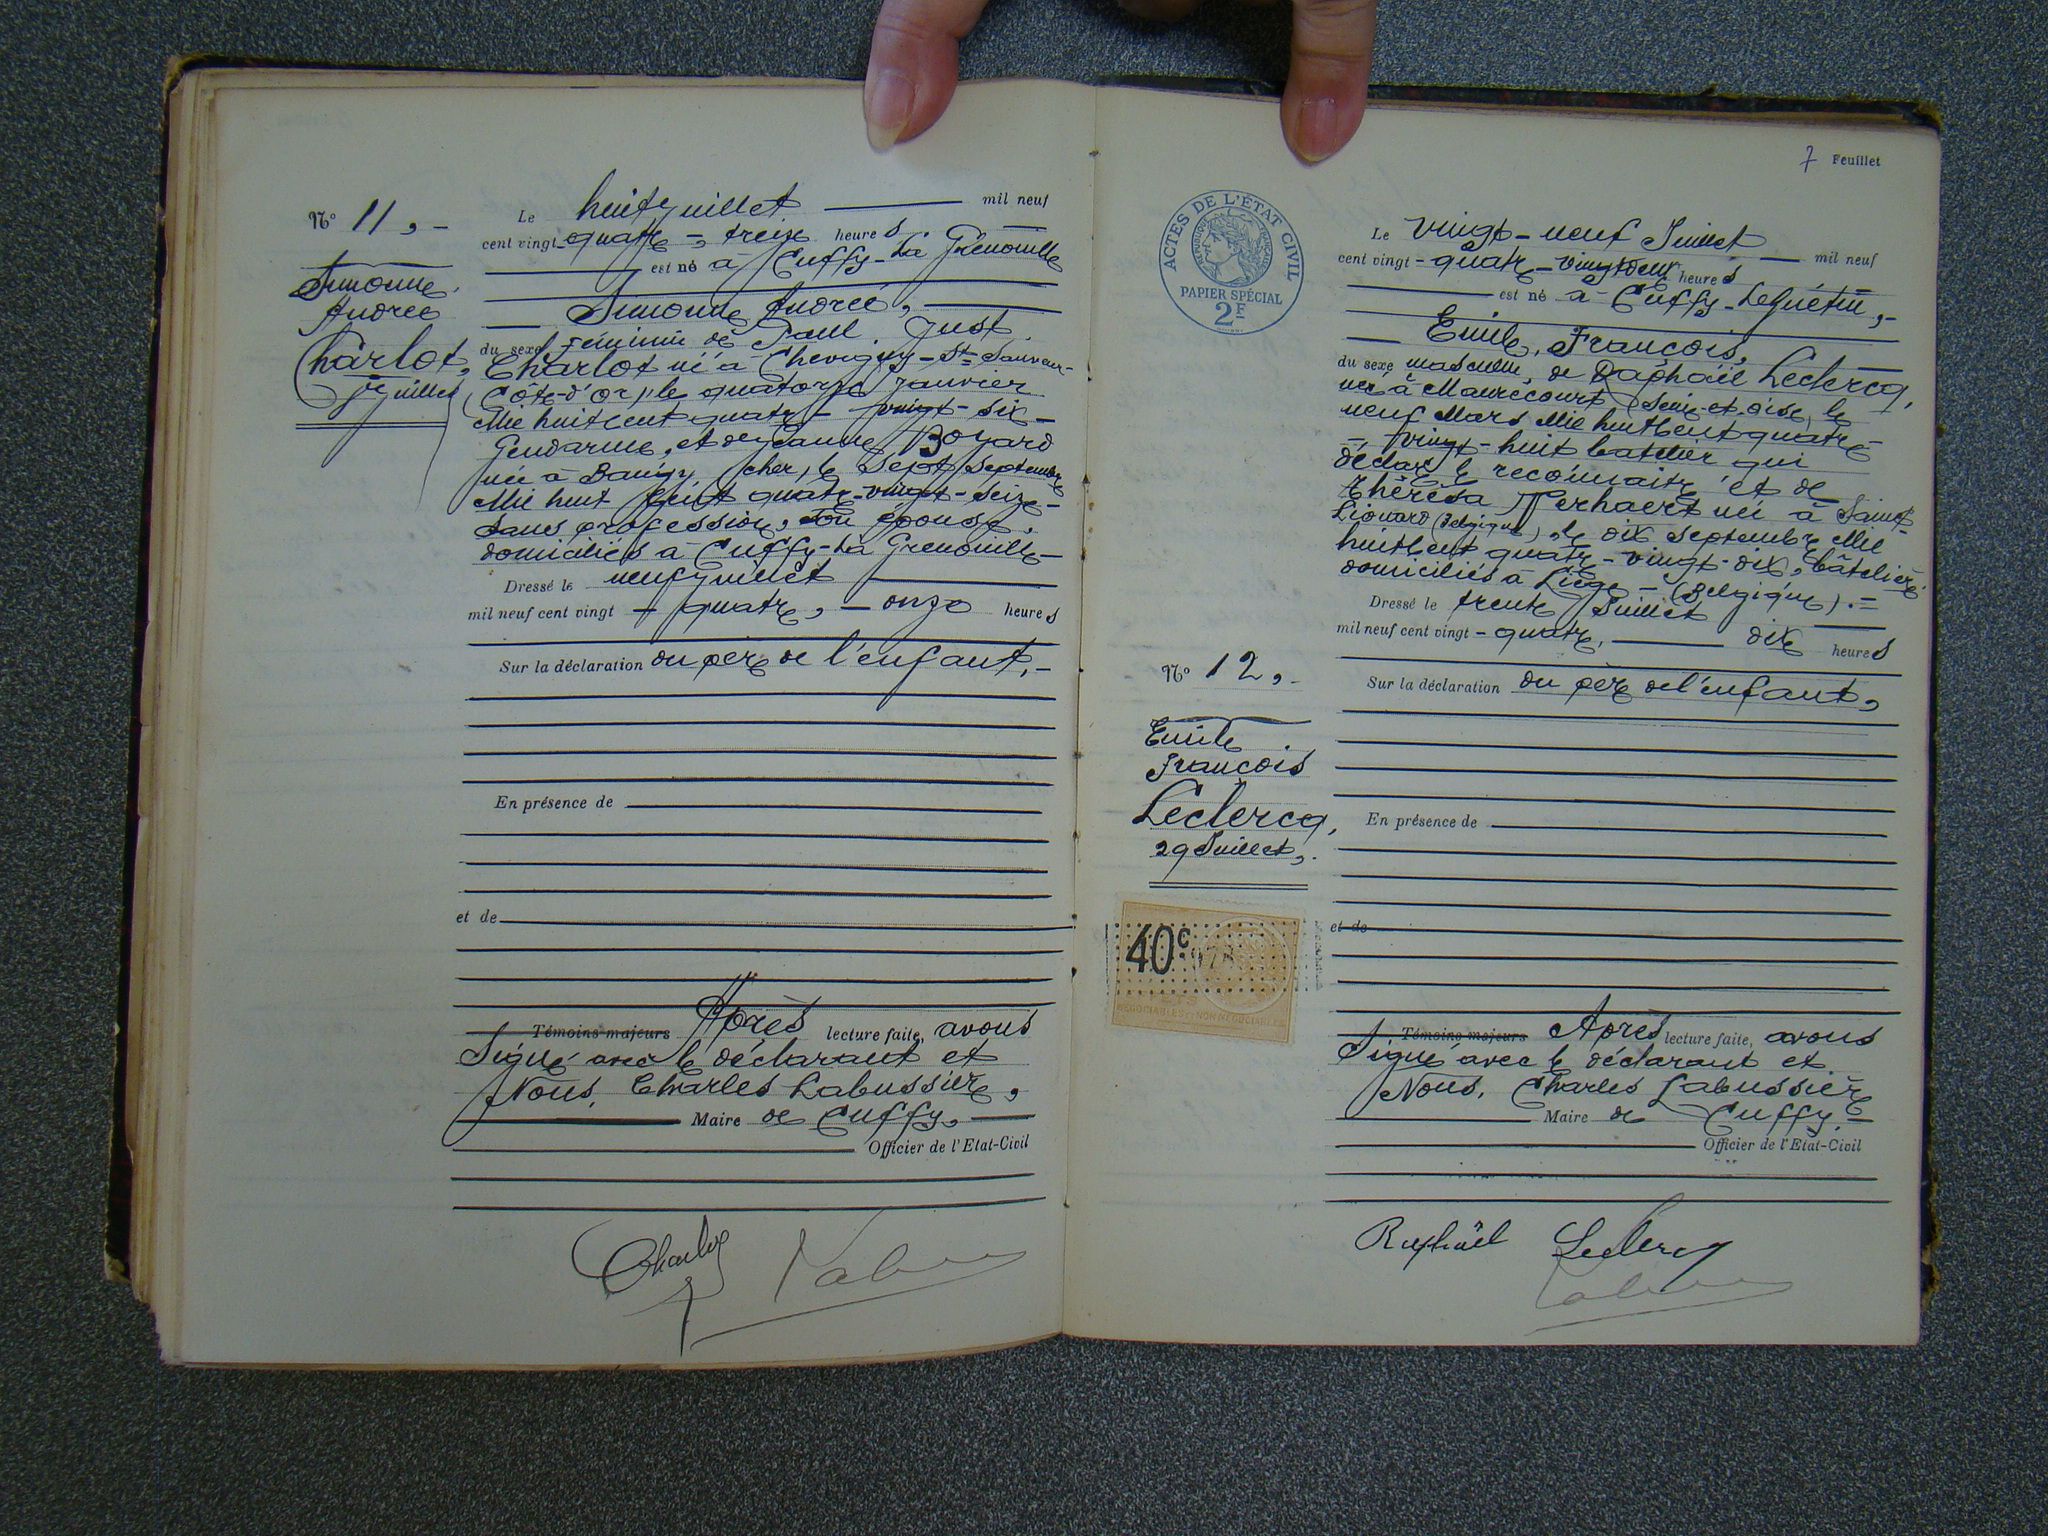 No 11,-
Simonne
Andrée
Charlot,
Juillet
Le huit Juillet mil neuf
cent vingt-quatre -, treize heures
est né à Cuffy-La Grenouille
Simonne Andrée,
du sexe féminin de Paul Just
Charlot né à Chevigny-St-Sauveur-
(Côte-d'or) le quatorze Janvier
Mil huit cent quatre-vingt-six-
Gendarme, et de Jeanne Boyard
née à Baugy (cher) le Sept Septembre
Mil huit cent quatre-vingt-seize-
Sans profession, son épouse,
domiciliés à Cuffy-La Grenouille-
Dressé le neuf Juillet
mil neuf cent vingt - quatre, - onze heures
Sur la déclaration du père de l'enfant,-
En présence de
et de
Témoins majeurs Après lecture faite, avons
Signé avec le déclarant et
Nous, Charles Labussière,
Maire de Cuffy,
Officier de l'Etat-Civil
Charlot
7 Feuillet
ACTES DE L'ÉTAT CIVIL
RÉPUBLIQUE FRANÇAISE
PAPIER SPÉCIAL
2F
Le vingt-neuf Juillet mil neuf
cent vingt-quatre-vingt deux heures
est né à Cuffy-Le Guétin,-
Emile, François,
du sexe masculin, de Raphaël Leclercq,
né à Maurecourt (Seine-et-oise) le
neuf Mars Mil huit Cent quatre-
-vingt-huit batelier qui
déclare le reconnaître et de
Thérésa Verhaert née à Saint-
Léonard (Belgique), le dix septembre Mil
huit Cent quatre-vingt-dix, batelière
domiciliés à Liège-(Belgique).=
Dressé le trente Juillet
mil neuf cent vingt-quatre, dix heures
No 12,-
Sur la déclaration du père de l'enfant,
Emile
François
Leclercq,
29 Juillet,
En présence de
et de
40c
NÉGOCIABLES ET NON NÉGOCIABLES
Témoins majeurs Après lecture faite, avons
Signé avec le déclarant et
Nous, Charles Labussière
Maire de Cuffy,=
Officier de l'Etat-Civil
Raphaël Leclercq